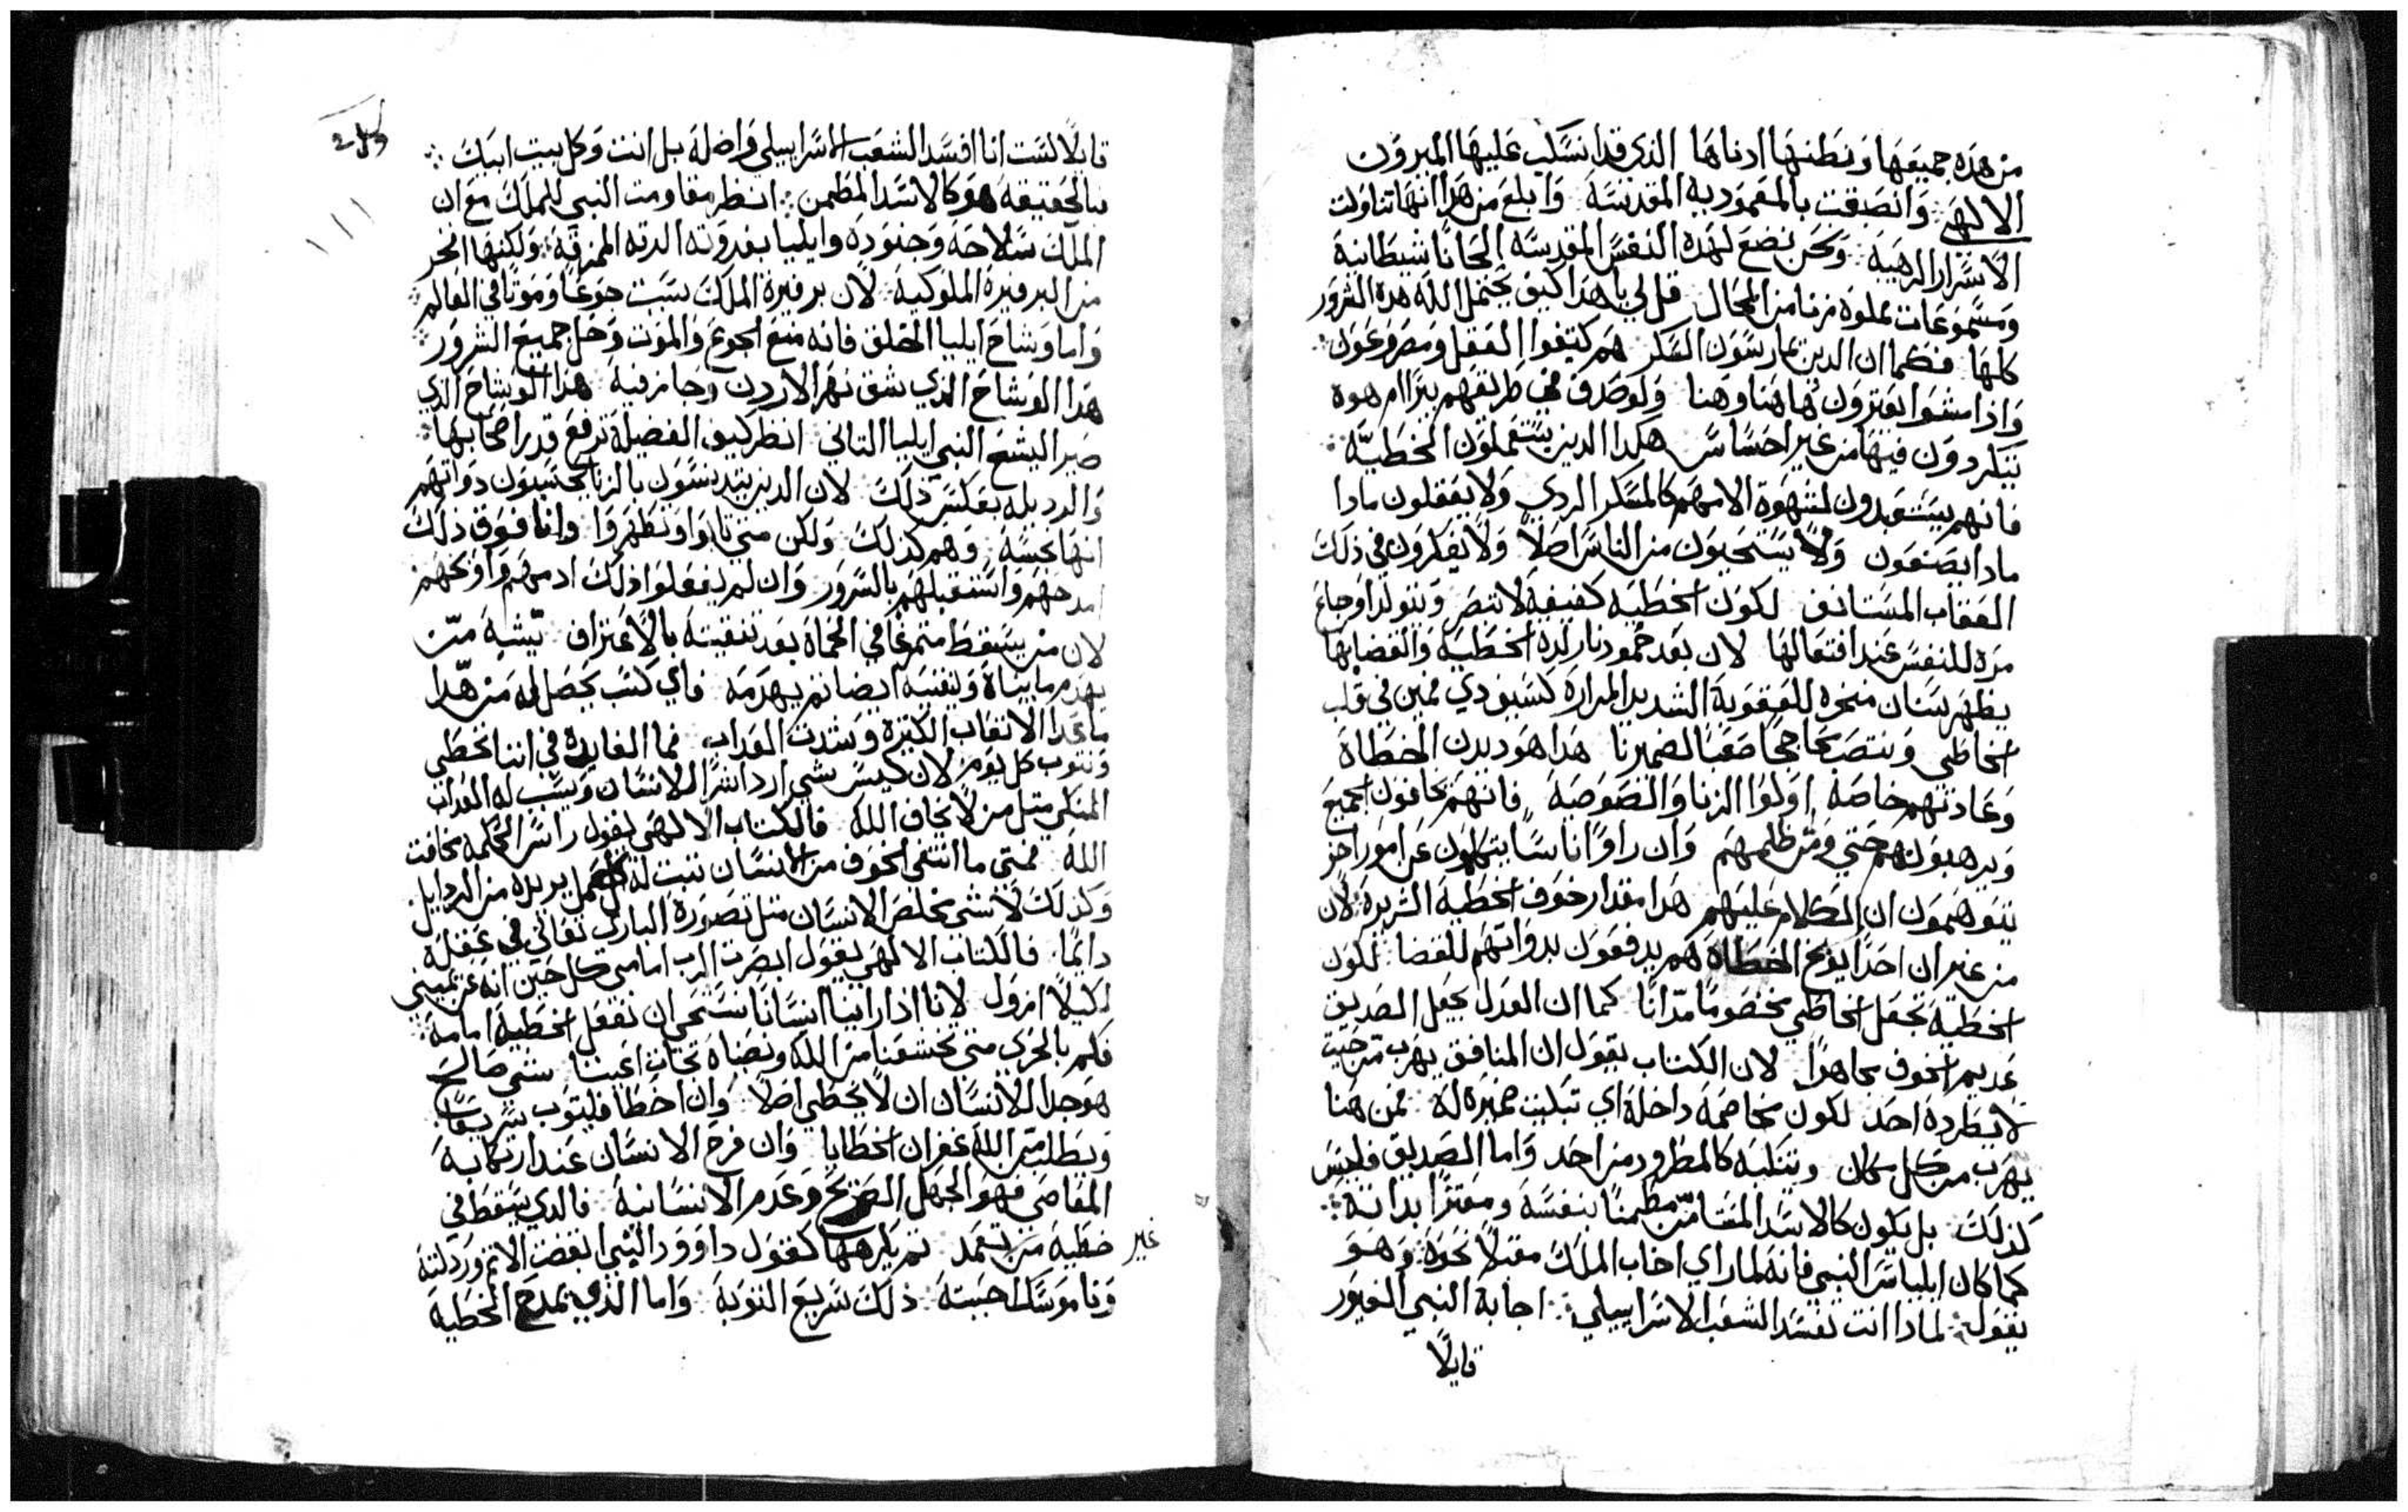 من هذه جميعها ونطنها ادناها الذي قد انسكب عليها الميرون
الالهي وانصبغت بالمعموديه المقدسه وابلغ من هذا انها تناولت
الاسرار الرهيبة ونحن نضع لهذه النفس المقدسه الحانا شيطانية
ومسموعات مملوه من المحال قل لي يا هذا كيف يحتمل الله هذه الشرور
كلها فكما ان الدين يمارسون السكر هم كتيفوا العقل ومصروعون
واذا مشوا يعترون هاهنا وهنا ولو صدف في طريقهم بيرا ام هوه
يتكردون فيها من غير احساس هكذا الدين يستعملون الخطيّة
فانهم يستعبدون لشهوة الامهم كالمسكر الردي ولا يعقلون مادا
مادا يصنعون ولا يستحيون من الناس اصلا ولا يفكرون في ذلك
العقاب المستانف لكون الخطيه كفيفة لا تبصر وتتولد اوجاع
مرة للنفس عند افتعالها لان بعد خمود نار لدة الخطيه وانقضايها
يظهر سنان منخره للعقوبة الشديد المرارة كسيف ودي فمين في قلب
الخاطي وينتصب محاججا صعبا لضميرنا هدا هو ديدن الخطاة
وعادتهم خاصة اولوا الزنا واللصوصية فانهم يخافون الجميع
ويرهبونهم حتي ومن ظلهم وان راوا اناسا يتكلمون عن امور اخر
يتوهمون ان الكلام عليهم هدا مقدار خوف الخطية الشريرة لان
من غير ان احدا يوبخ الخطاة هم يدفعون بدواتهم للقضا لكون
الخطية تجعل الخاطي مخصوما مدانا كما ان العدل يجعل الصديق
عديم الخوف مجاهدا لان الكتاب يقول ان المنافق يهرب من حيت
لا يطرده احد لكون مخاصمه داخلة اي تبكيت ضميره له فمن هنا
يهرب من كل مكان ويتقلبه كالمطرود من احد واما الصديق فليس
كذلك بل يكون كالاسد المتشامّن مطمنا بنفسه ومعتزا بداته
كما كان ايلياس النبي فانه لما راي اخاب الملك مقبلا نحوه وهو
يقول لمادا انت تفسد الشعب الاسراييلي اجابة النبي الغيور
قايلًا
قايلا لست انا افسد الشعب الاسراييلي واضله بل انت وكل بيت ابيك
فبالحقيقه هو كالاسد المطمن انظر مقاومت النبي للملك مع ان
الملك سلاحه وجنوده وايليا بفروته الرته الممزقة ولكنها افخر
من البرفيرة الملوكية لان برفيرة الملك سببت جوعا وموتا في العالم
واما وشاح ايليا المخلق فانه منع الجوع والموت وحل جميع الشرور
هدا الوشاح الذي شق نهر الاردن وجاز فية هدا الوشاح الذي
صير اليشع النبي ايليا التاني انظر كيف الفضيلة ترفع قدر اصحابها
والرديله بعكس ذلك لان الدين يتدنسون بالزنا يحسبون دواتهم
انها نجسة وهم كذلك ولكن متي تابوا وتطهروا وانا فوق ذلك
امدحهم واستقبلهم بالسرور وان لم يفعلوا ذلك ادمهم واوبخهم
لان من يسقط متمرغا في الحماة بعد تنقيته بالاعتراف يشبه من
يهدم ما بناة وبنفسه ايضا ثم يهدمه فاي كسب يحصل له من هدا
ما عدا الاتعاب الكثيرة وشدت العداب فما الفايدة في اننا نخطي
ونتوب كل يوم لان ليس شي اردا شرا للانسان ويسبب له العداب
المنكي مثل من لا يخاف الله فالكتاب الالهي يقول راس الحكمه مخافت
الله فمتى ما انتفى الخوف من الانسان تنبت له كل عمل يريده من الردايل
وكذلك لا شي يخلص الانسان متل تصورة الباري تعالى في عقله
دايما فالكتاب الالهي يقول ابصرت الرب امامي كل حين انه عن يميني
لكيلا ازول لانا اذا راينا انسانا نستحي ان نفعل الخطية امامه
فكم بالحري متى تخشعنا من الله ونصبناه تجاة اعيننا شي صالح
هو جدا للانسان ان لا يخطي اصلا وان اخطا فليتوب سريعا
ويطلب من الله غفران الخطايا وان فرح الانسان عند ارتكابه
المعاصي فهو الجهل الصريح وعدم الانسانية فالدي يسقط في
خطية من غير تعمد تم يكرهها كقول داوود النبي ابغضت الاتم وردلته
وناموسك احببته ذلك سريع التوبة واما الذي يمدح الخطية